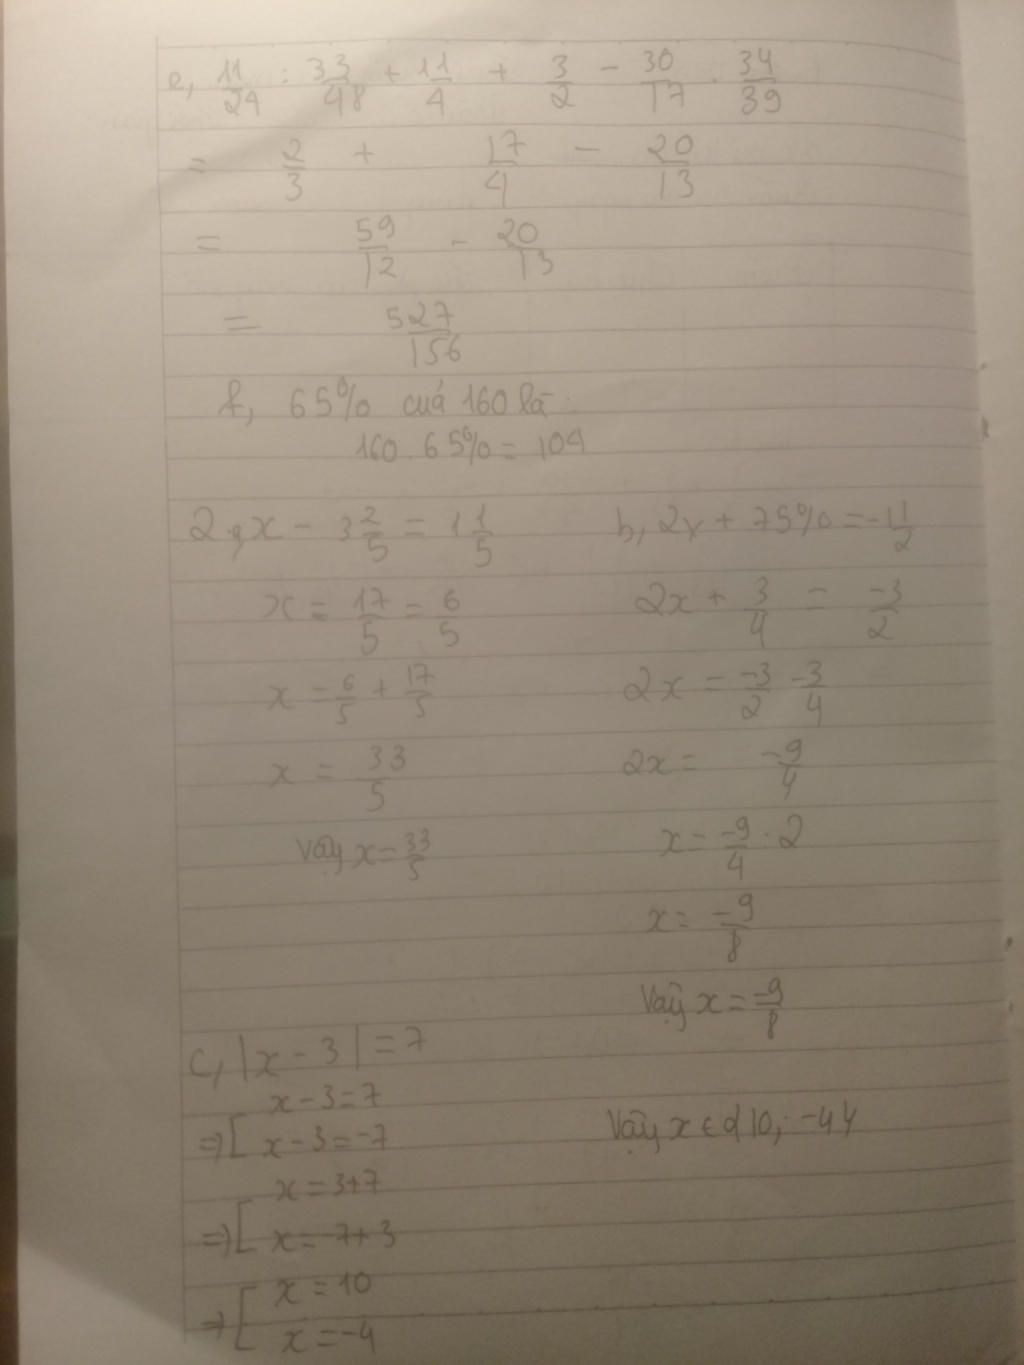 e, 11/24 : 33/48 + 11/4 + 3/2 - 30/17 . 34/39
= 2/3 + 17/4 - 20/13
= 59/12 - 20/13
= 527/156
f, 65% cuả 160 là:
160 . 65% = 104
2.a, x - 3 2/5 = 1 1/5
x = 17/5 = 6/5
x = 6/5 + 17/5
x = 33/5
Vậy x = 33/5
b, 2x + 75% = -1 1/2
2x + 3/4 = -3/2
2x = -3/2 - 3/4
2x = -9/4
x = -9/4 . 2
x = -9/8
Vậy x = -9/8
c, |x - 3| = 7
x - 3 = 7
=> [ x - 3 = -7
x = 3 + 7
=> [ x = -7 + 3
x = 10
=> [ x = -4
Vậy x ∈ {10; -4}